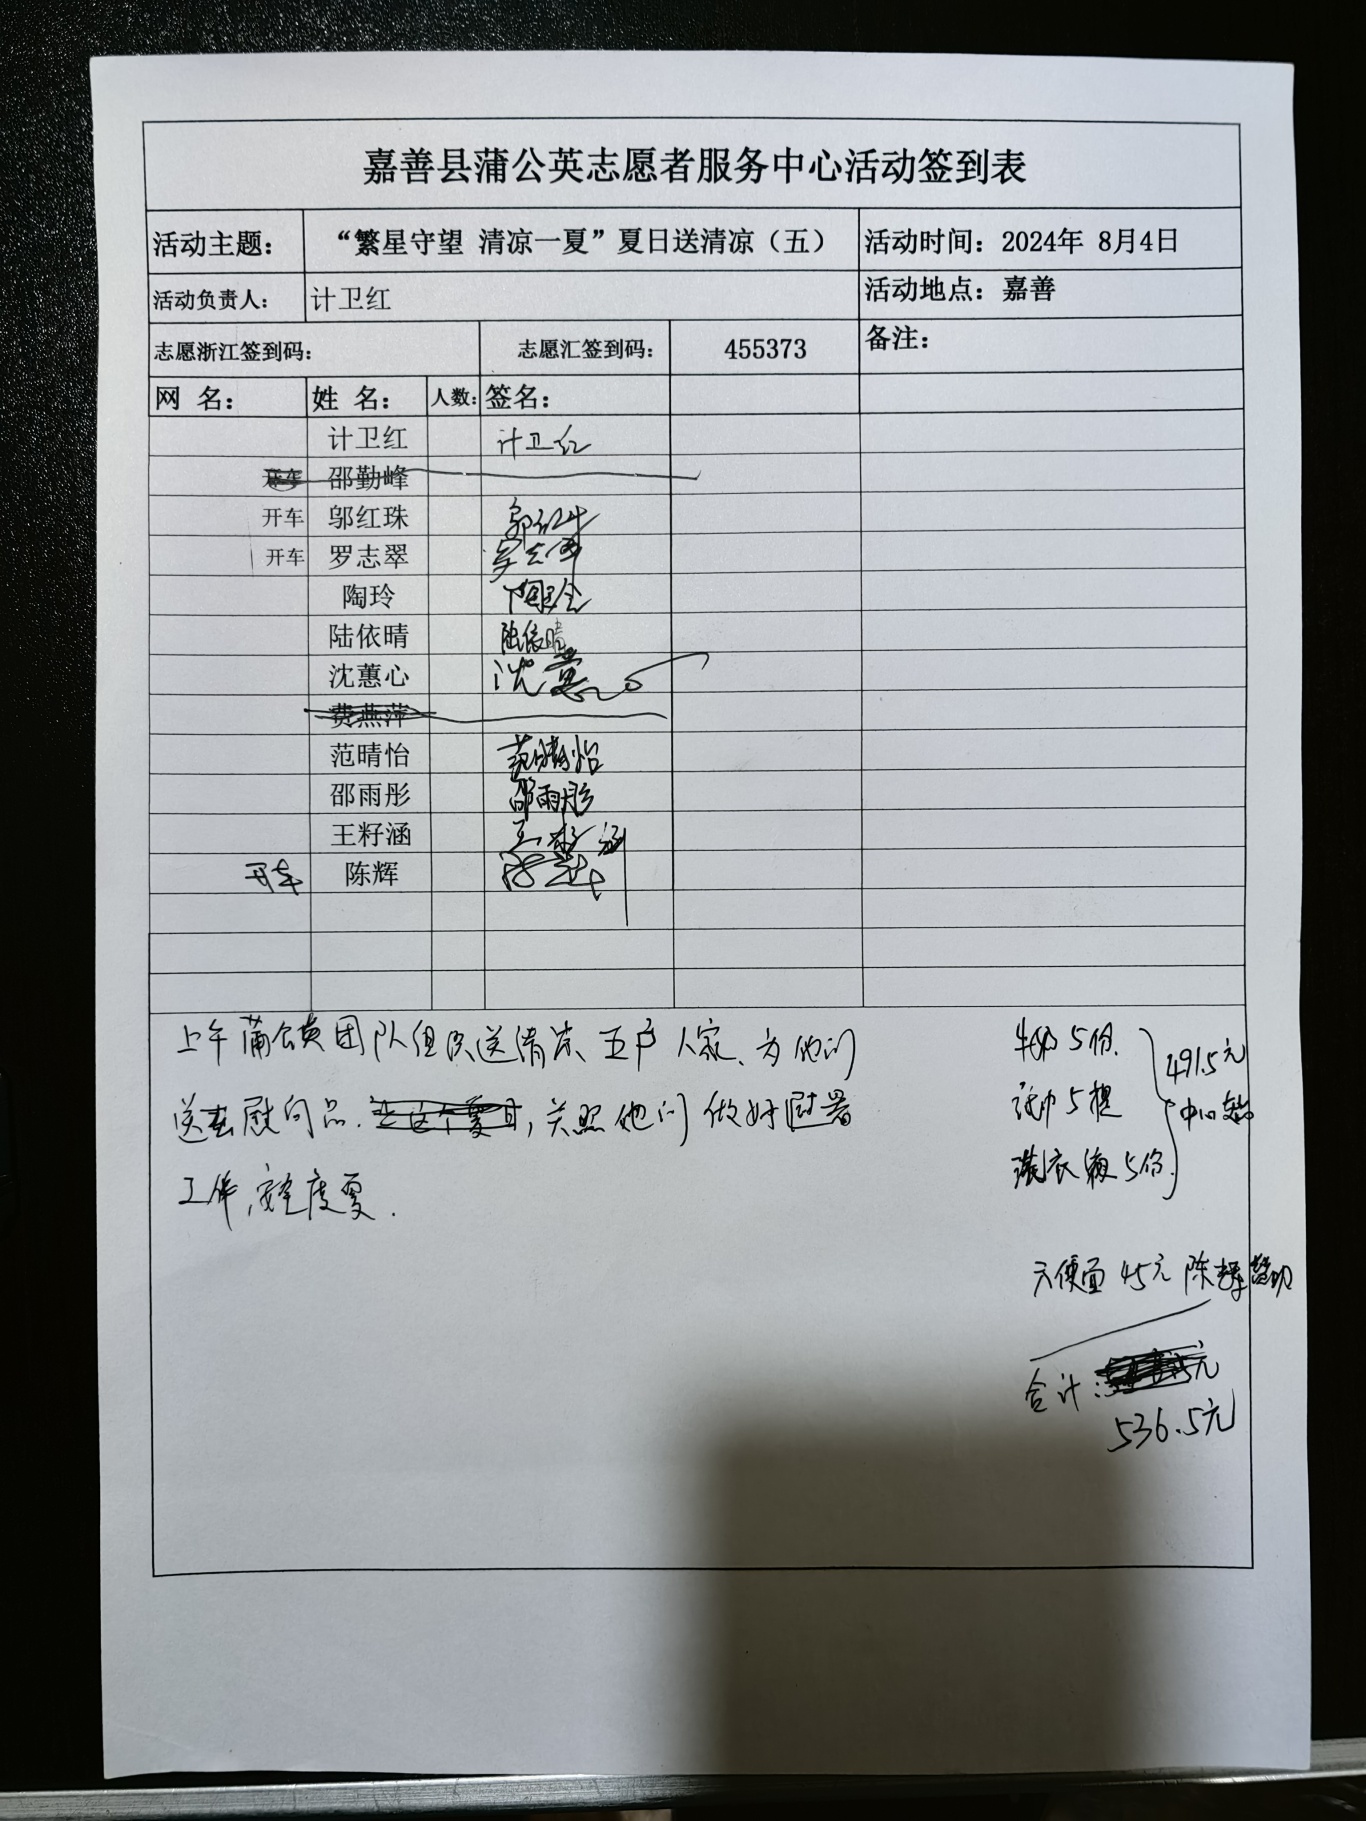 嘉善县蒲公英志愿者服务中心活动签到表
活动主题： “繁星守望 清凉一夏”夏日送清凉（五） 活动时间：2024年 8月4日
活动负责人： 计卫红 活动地点：嘉善
志愿浙江签到码： 志愿汇签到码： 455373 备注：
网 名： 姓 名： 人数： 签名：
计卫红 计卫红
开车 邵勤峰
开车 邬红珠 邬红珠
开车 罗志翠 罗志翠
陶玲 陶玲
陆依晴 陆依晴
沈蕙心 沈蕙心
费燕萍
范晴怡 范晴怡
邵雨彤 邵雨彤
王籽涵 王籽涵
开车 陈辉 陈辉
上午蒲公英团队组织送清凉、五户人家、为他们
送去慰问品. 关照他们做好防暑
工作,安全度夏.
牛奶5份.
5提
洗衣液5份.
491.5元
中心
方便面 45元 陈辉赞助
合计: 元
536.5元